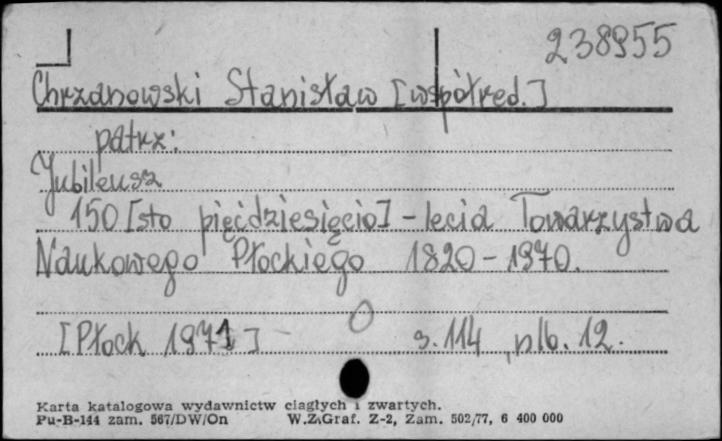 238955
Chrzanowski Stanisław [współred.]
patrz:
Jubileusz
150 [sto pięćdziesięcio] - lecia Towarzystwa
Naukowego Płockiego 1820 - 1970.
[Płock 1971] s. 114, nlb. 12.
Karta katalogowa wydawnictw ciągłych i zwartych.
Pu-B-144 zam. 567/DW/On W.Z.Graf. Z-2, Zam. 502/77, 6 400 000